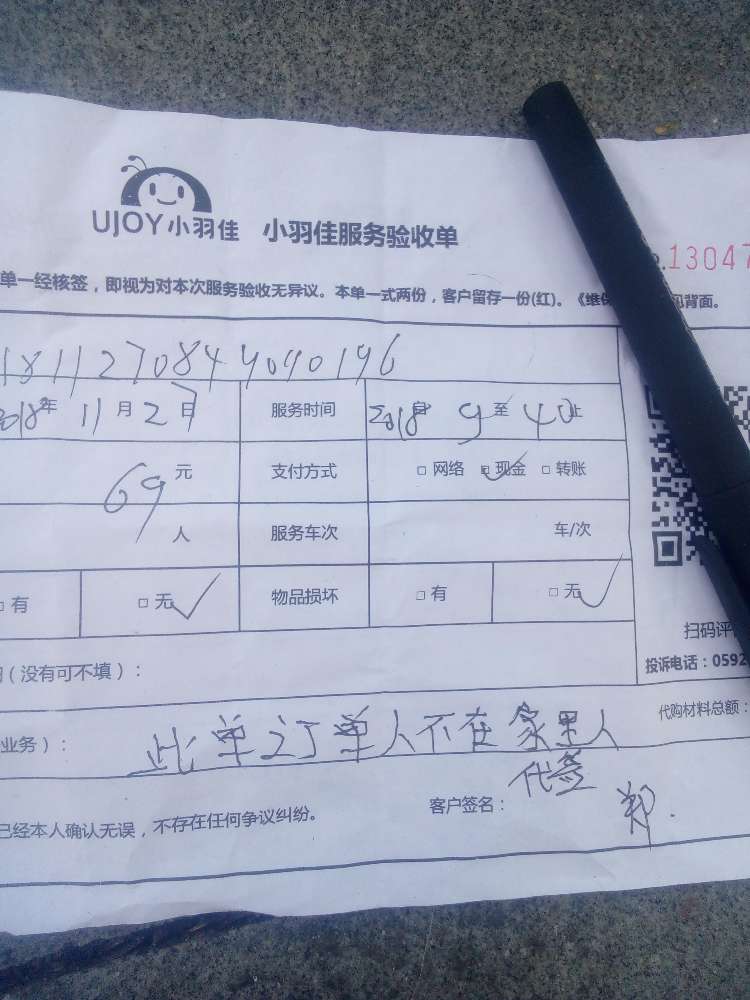 UJOY小羽佳 小羽佳服务验收单
.13047
单一经核签，即视为对本次服务验收无异议。本单一式两份，客户留存一份(红)。《维保 见背面。
1811270844040196
2018年 11月27日 服务时间 2018 9至40止
69元 支付方式 □网络 □现金 □转账
人 服务车次 车/次
□有 □无 物品损坏 □有 □无
扫码评
(没有可不填)： 投诉电话：0592
业务)： 此单订单人不在家里人 代购材料总额：
代签
已经本人确认无误，不存在任何争议纠纷。 客户签名： 郑.